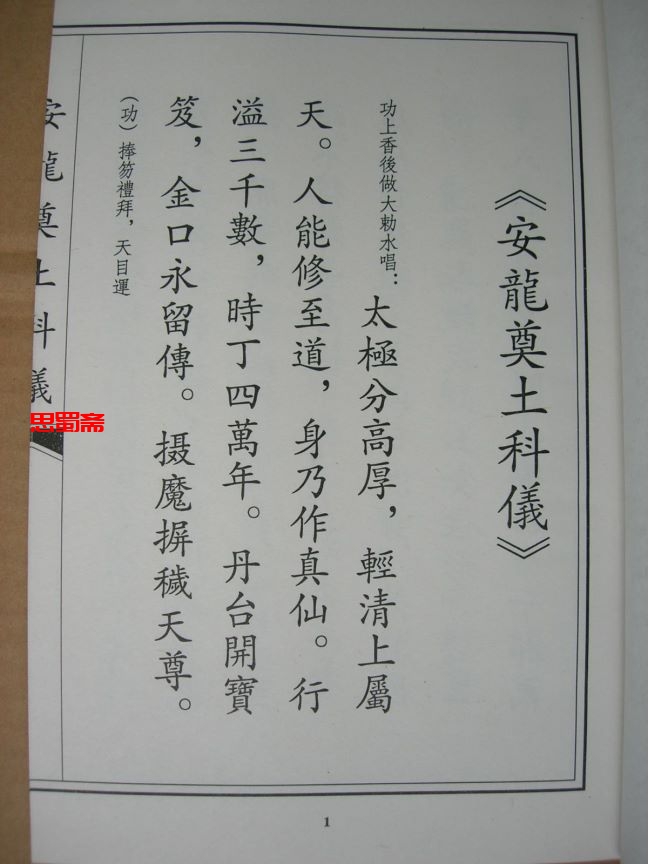 《安龍奠土科儀》
功上香後做大勅水唱：太極分高厚，輕清上屬
天。人能修至道，身乃作真仙。行
溢三千數，時丁四萬年。丹台開寶
笈，金口永留傳。摄魔摒穢天尊。
（功）捧笏禮拜，天目運
安龍奠土科儀
思蜀斋
1